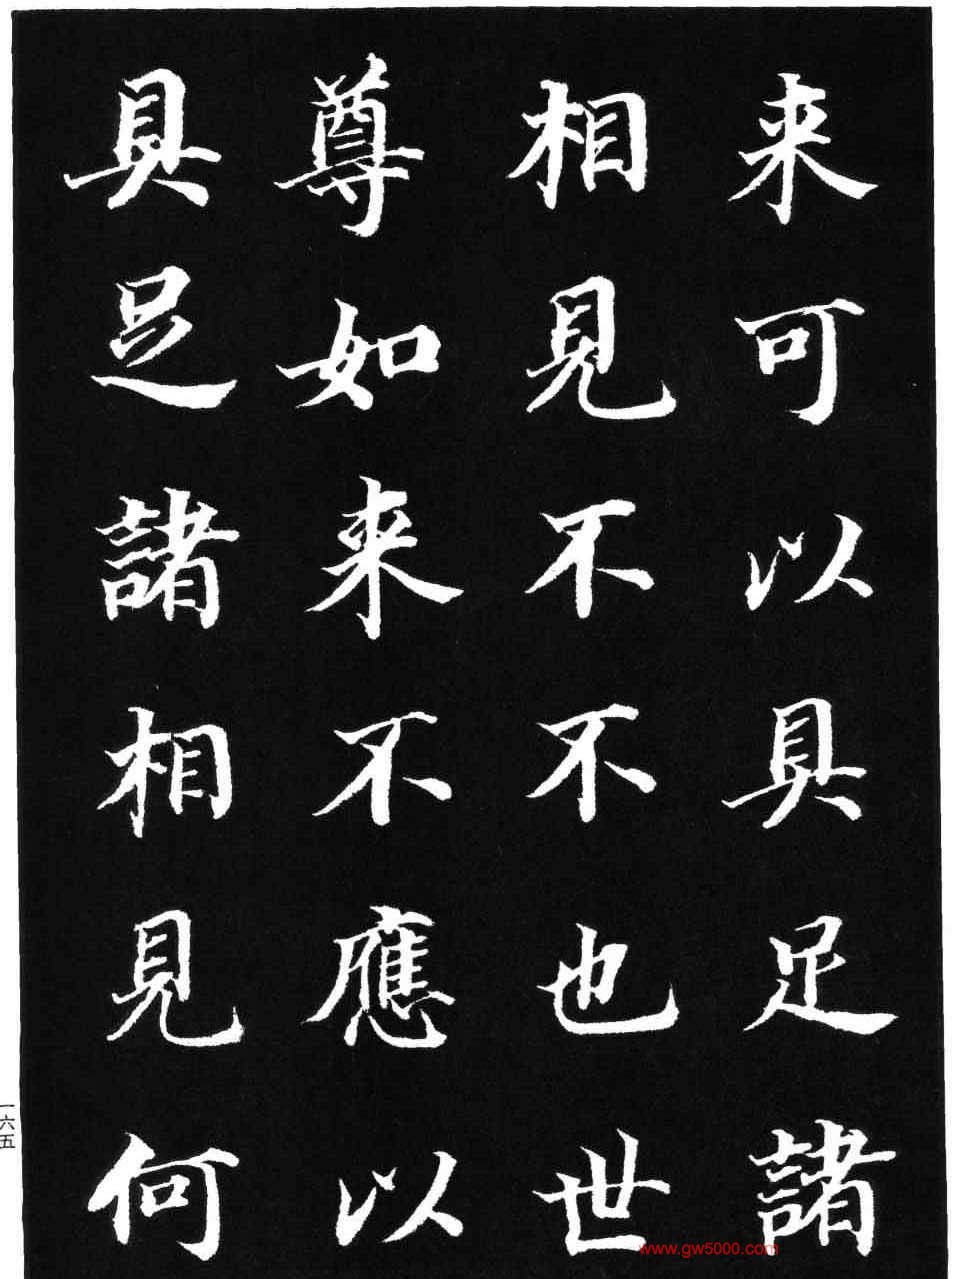 来可以具足諸
相見不不也世
尊如来不應以
具足諸相見何
一六五
www.gw5000.com